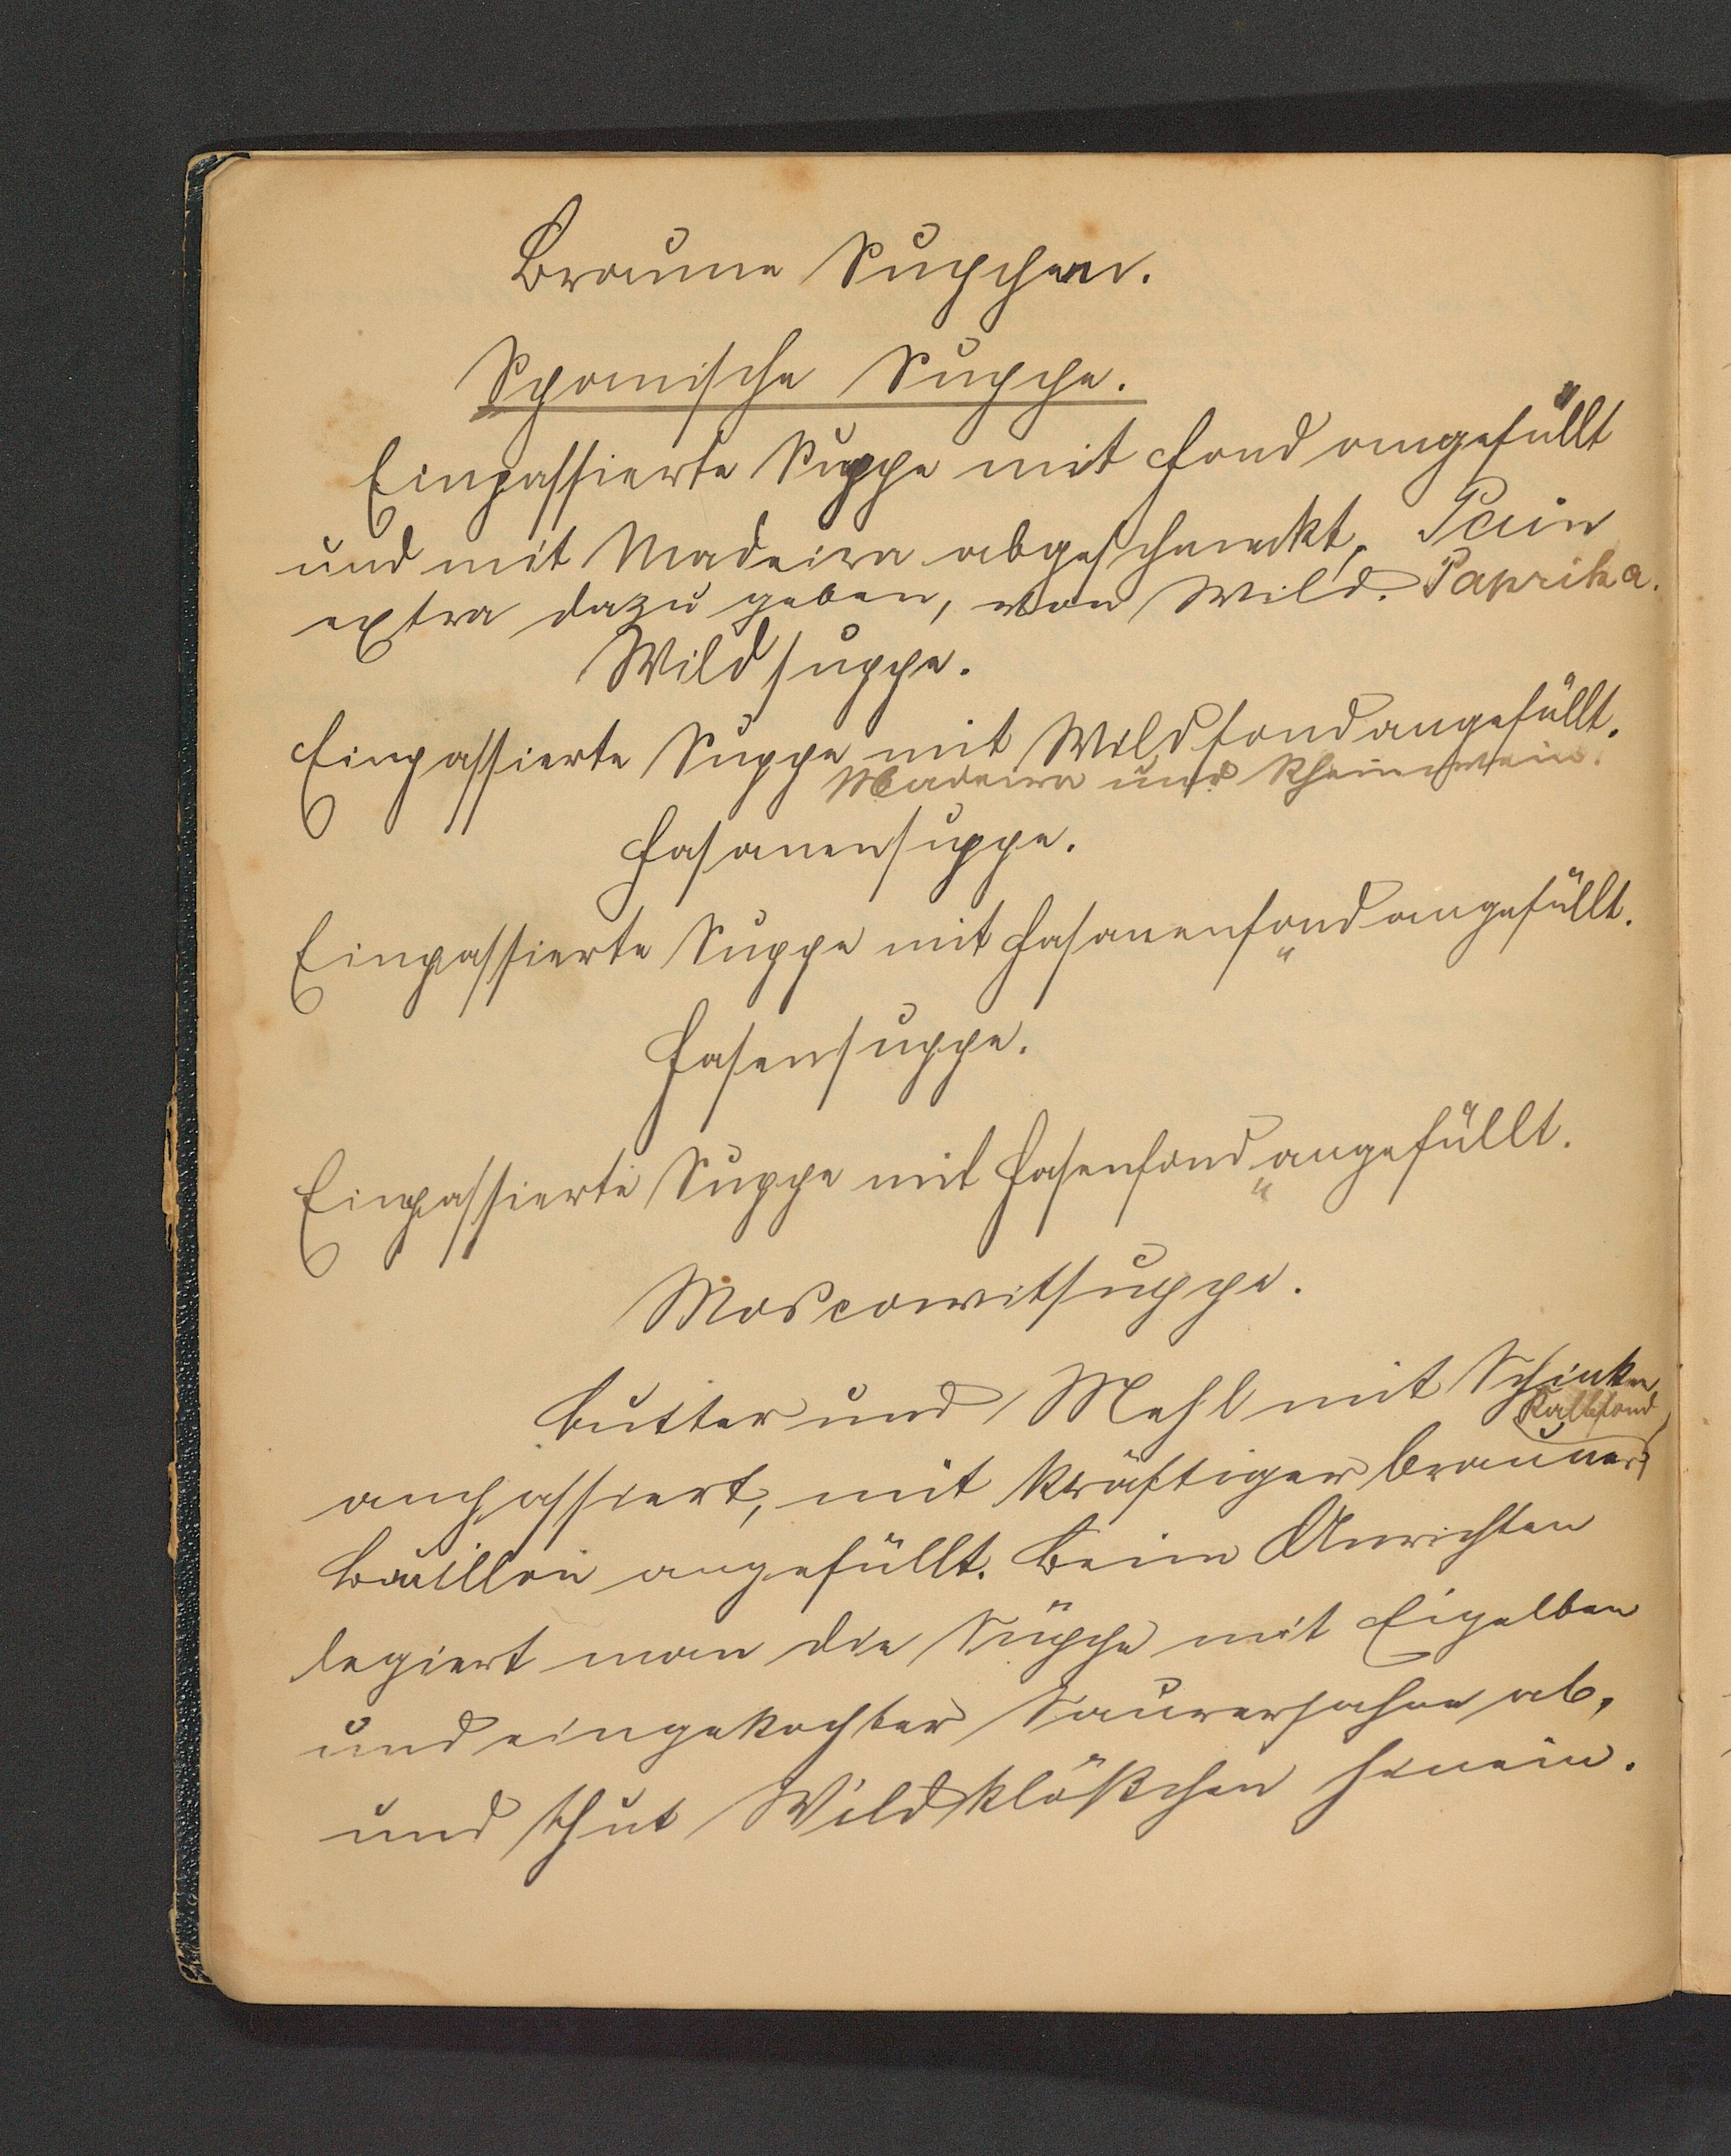 Braune Suppen.
Spanische Suppe.
Einpassierte Suppe mit Fond angefüllt
und mit Madeira abgeschmeckt, Pain
extra dazu geben, von Wild. Paprika.
Wildsuppe.
Einpassierte Suppe mit Wildfond angefüllt.
Madeira und Rheinwein.
Fasanensuppe.
Einpassierte Suppe mit Fasanenfond angefüllt.
"
Hasensuppe.
Einpassierte Suppe mit Hasenfond angefüllt.
"
Moscowitsuppe.
Butter und Mehl mit Schinken
Kalbfond
anpassiert, mit kräftiger brauner
Bouillon angefüllt. Beim Anrichten
legiert man die Suppe mit Eigelben
und eingekochter Sauersahne ab,
und thut Wildklößchen hinein.